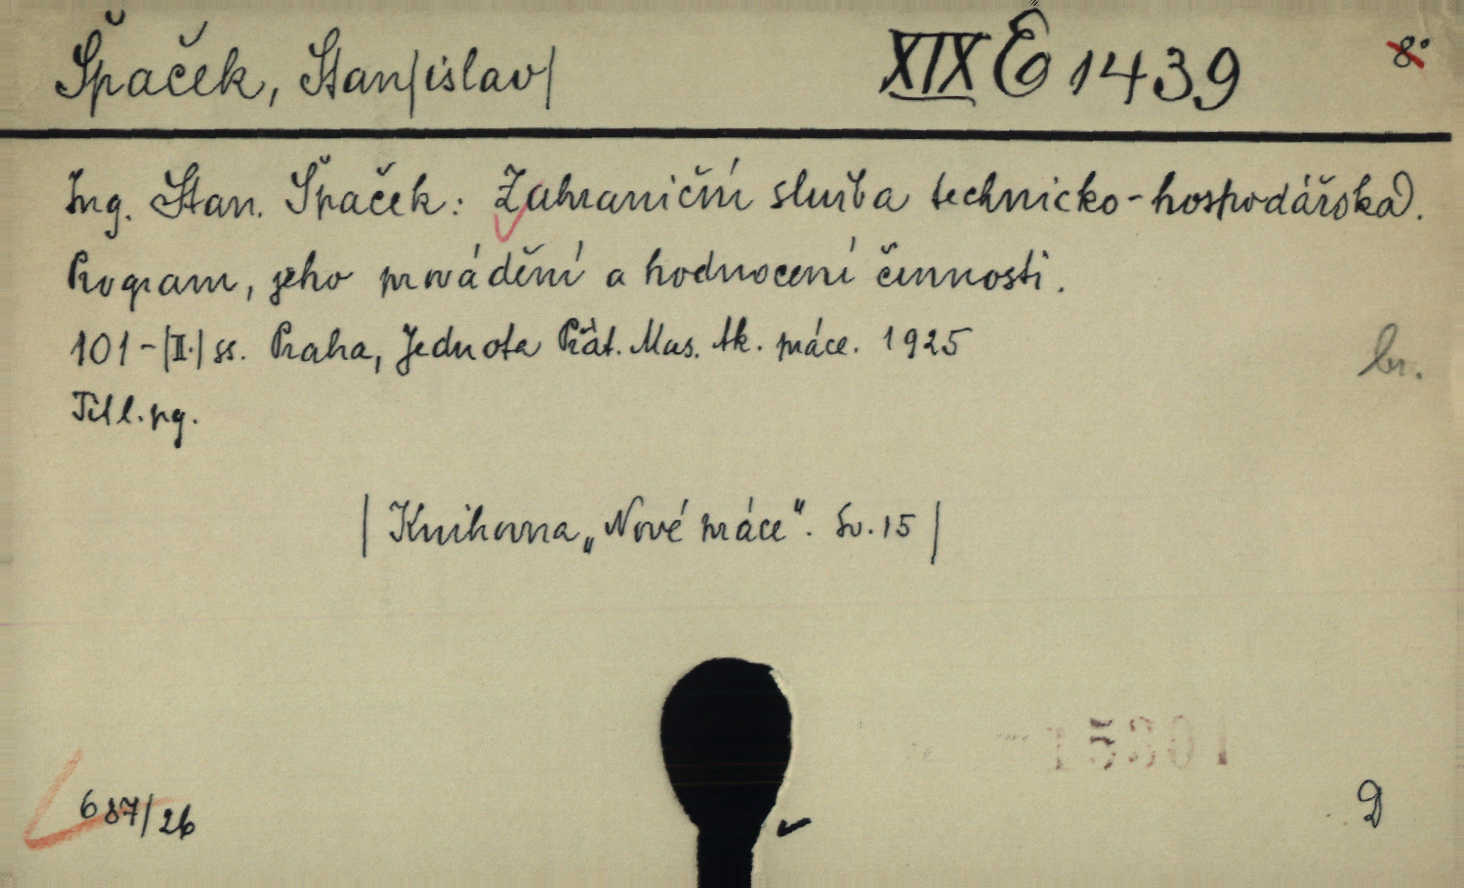 Špaček, Stan|islav| XIX E 1439 8°
Ing. Stan. Špaček: Zahraniční služba technicko-hospodářská.
Program, jeho provádění a hodnocení činnosti.
101-|II.| ss. Praha, Jednota Přát. Mas. Ak. práce. 1925
br.
Titl. pg.
| Knihovna „Nové práce". Sv. 15 |
687/26
D